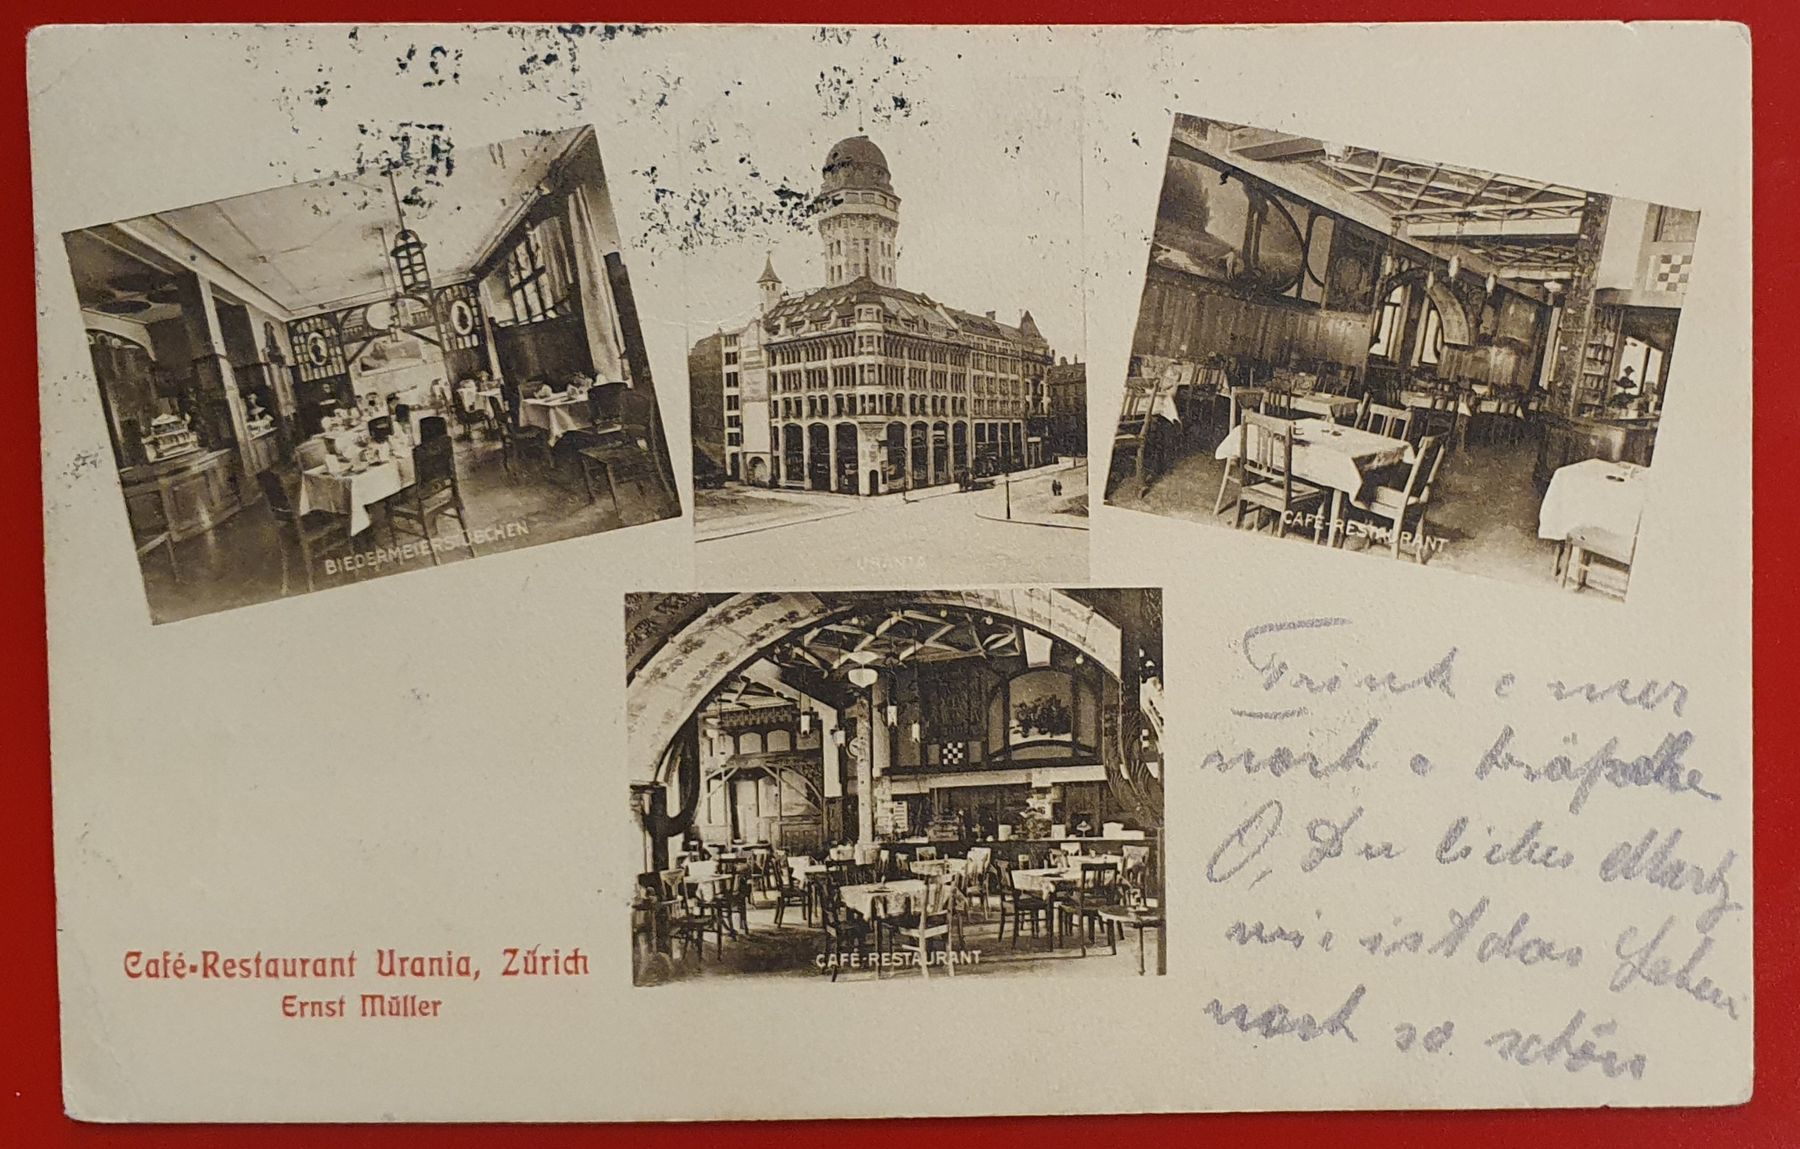 BIEDERMEIERSTÜBCHEN
URANIA
CAFÉ-RESTAURANT
CAFÉ-RESTAURANT
Café-Restaurant Urania, Zürich
Ernst Müller
Trink e mer
noch e
O, Du liebes
wie ist das Leben
noch so schön